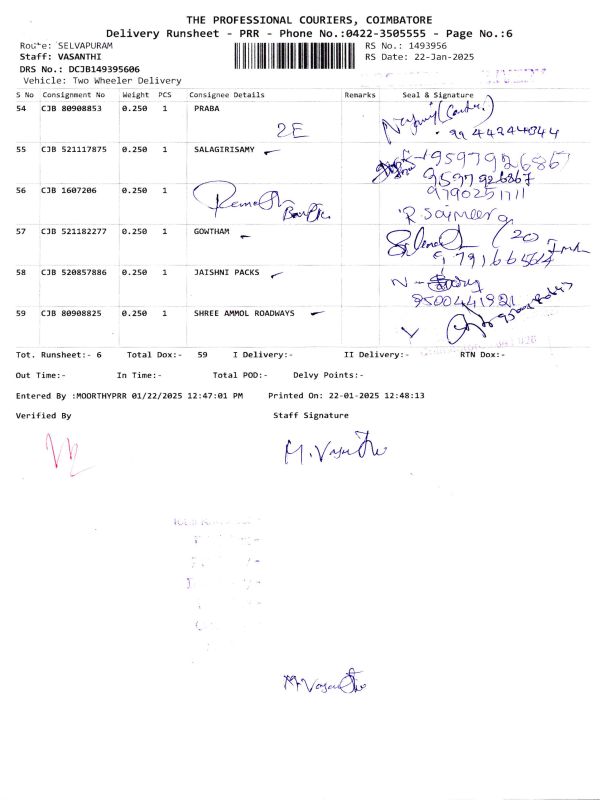 THE PROFESSIONAL COURIERS, COIMBATORE
Delivery Runsheet - PRR - Phone No.:0422-3505555 - Page No.:6
Route: SELVAPURAM
RS No.: 1493956
Staff: VASANTHI
RS Date: 22-Jan-2025
DRS No.: DCJB149395606
Vehicle: Two Wheeler Delivery
S No Consignment No Weight PCS Consignee Details Remarks Seal & Signature
54 CJB 80908853 0.250 1 PRABA
2E
9944244344
55 CJB 521117875 0.250 1 SALAGIRISAMY
9597926867
9597926867
56 CJB 1607206 0.250 1
9790251711
57 CJB 521182277 0.250 1 GOWTHAM
58 CJB 520857886 0.250 1 JAISHNI PACKS
9500441921
59 CJB 80908825 0.250 1 SHREE AMMOL ROADWAYS
Tot. Runsheet:- 6 Total Dox:- 59 I Delivery:- II Delivery:- RTN Dox:-
Out Time:- In Time:- Total POD:- Delvy Points:-
Entered By :MOORTHYPRR 01/22/2025 12:47:01 PM Printed On: 22-01-2025 12:48:13
Verified By Staff Signature
M. Vasanthi
M. Vasanthi